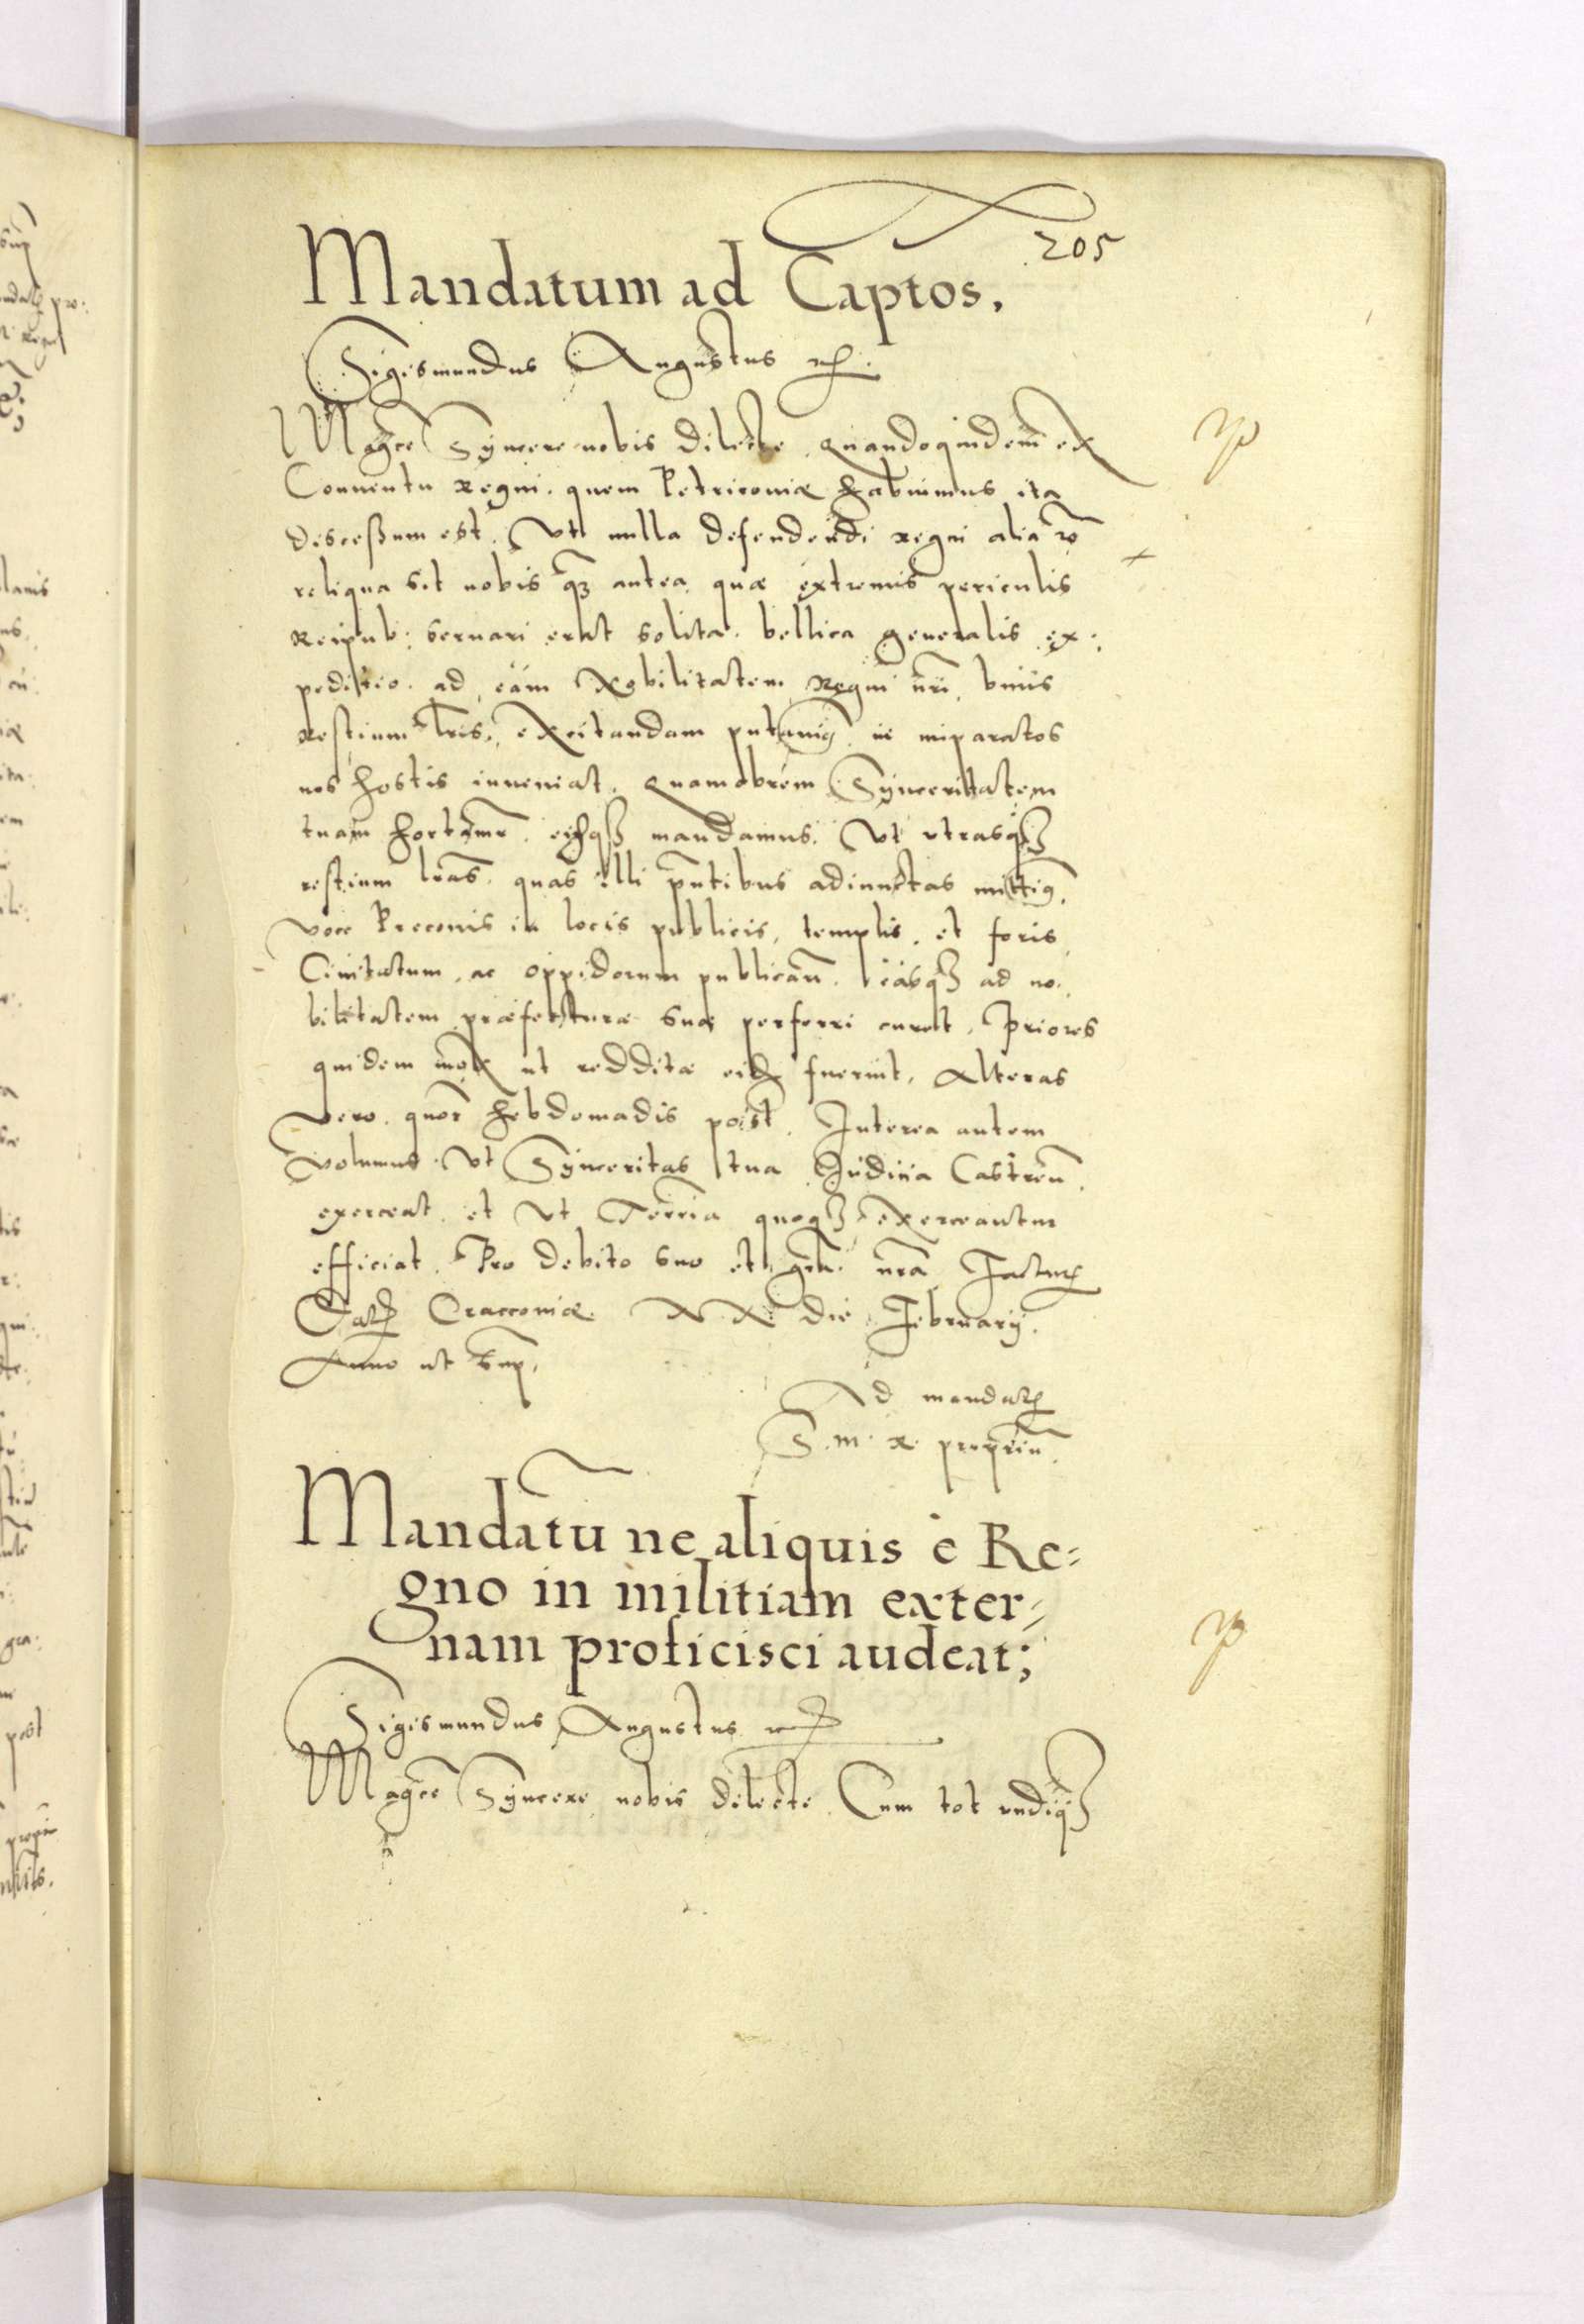 205
Mandatum ad Captos.
Sigismundus Augustus etc.
Magce Syncere nobis dilecte. Quandoquidem ex
Conuentu Regni. quem Petricouiæ habuimus ita
discessum est. Vt nulla defendendi regni alia ro
reliqua sit nobis qz antea, quæ extremis periculis
Reipub: seruari erat solita. bellica generalis ex:
peditio. ad eam Nobilitatem Regni nri, binis
Restium lris, excitandam putauim9, ne imparatos
nos hostis inueniat. Quamobrem Synceritatem
tuam hortamr. eiq3 mandamus. Vt vtrasq3
restium lras. quas illi pntibus adiunctas mittim9.
voce Preconis in locis publicis, templis, et foris
Ciuitatum, ac oppidorum publicari. easq3 ad no:
bilitatem præfecturæ suæ perferri curet. Priores
quidem mox ut redditæ eid fuerint, Alteras
vero. quor hebdomadis post. Interea autem
volumus. Vt Synceritas tua Iudicia Castren.
exerceat. et Vt Terria quoq3 exerceantur
efficiat. Pro debito suo et gra. nra Factur
Dat Cracoviæ. XX die Februarij.
Anno ut sup.
Ad mandat
S. M. R. propriu.
Mandatū ne aliquis è Re=
gno in militiam exter=
nam proficisci audeat;
Sigismundus Augustus etc.
Magce Syncere nobis dilecte. Cum tot vndiq3